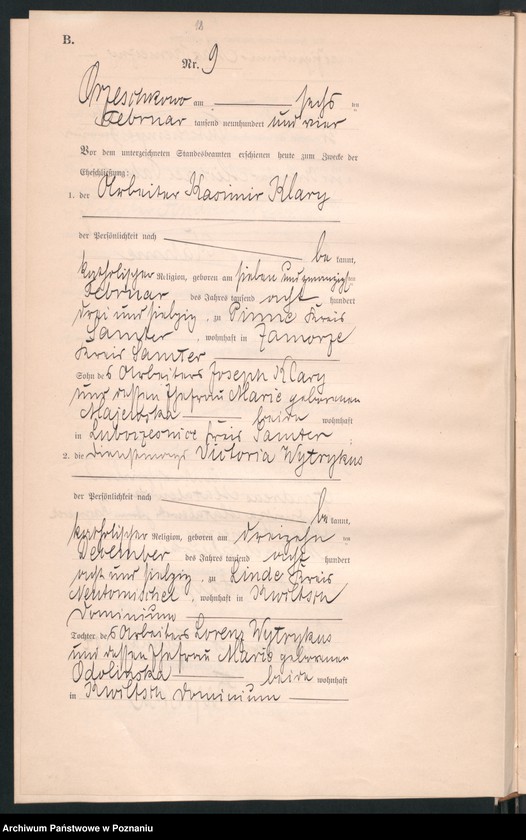 18
B.
Nr. 9
Orzeschkowo am sechs ten
Februar tausend neunhundert und vier
Vor dem unterzeichneten Standesbeamten erschienen heute zum Zwecke der
Eheschließung:
1. der Arbeiter Kasimir Klary
der Persönlichkeit nach
be kannt,
katholischer Religion, geboren am sieben und zwanzigsten
Februar des Jahres tausend acht hundert
drei und siebzig, zu Pinne Kreis
Samter, wohnhaft in Zamorze
Kreis Samter
Sohn des Arbeiters Joseph Klary
und dessen Ehefrau Marie geborenen
Majewska beide wohnhaft
in Luboczesnice Kreis Samter;
2. die Dienstmagd Victoria Wytrykus
der Persönlichkeit nach
be kannt,
katholischer Religion, geboren am dreizehn ten
Dezember des Jahres tausend acht hundert
acht und siebzig, zu Linde Kreis
Neutomischel, wohnhaft in Kwiltsch
Dominium
Tochter des Arbeiters Lorenz Wytrykus
und dessen Ehefrau Marie geborenen
beide wohnhaft
in Kwiltsch Dominium
Archiwum Państwowe w Poznaniu